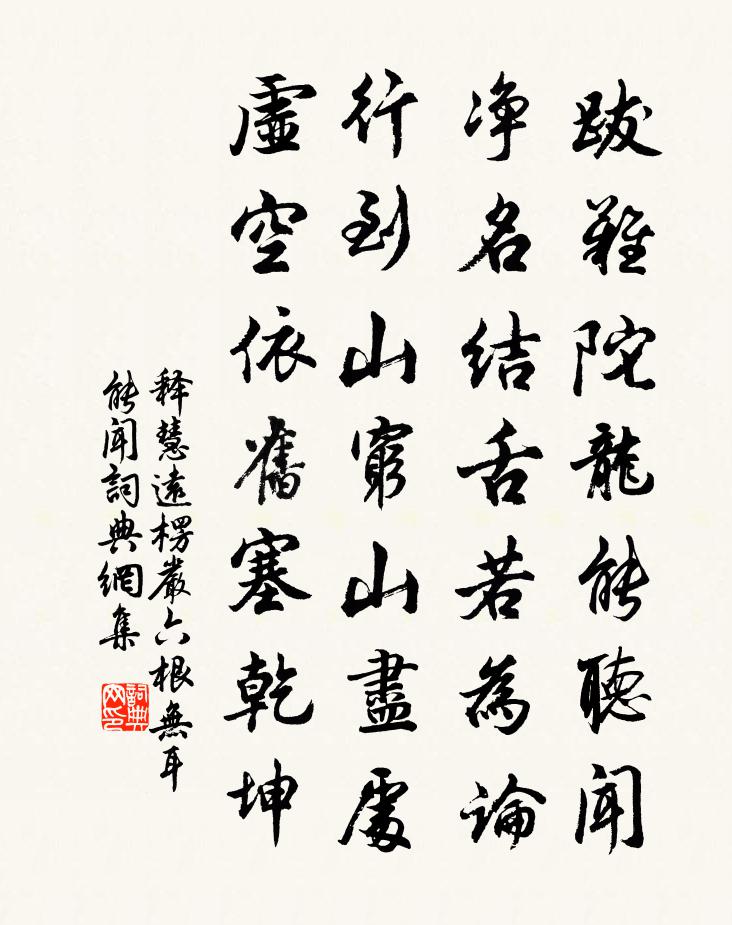 跋難陀龍能聽聞
净名結舌若為論
行到山窮山盡處
虛空依舊塞乾坤
釋慧遠楞嚴六根無耳
能聞詞典網集
詞典网印